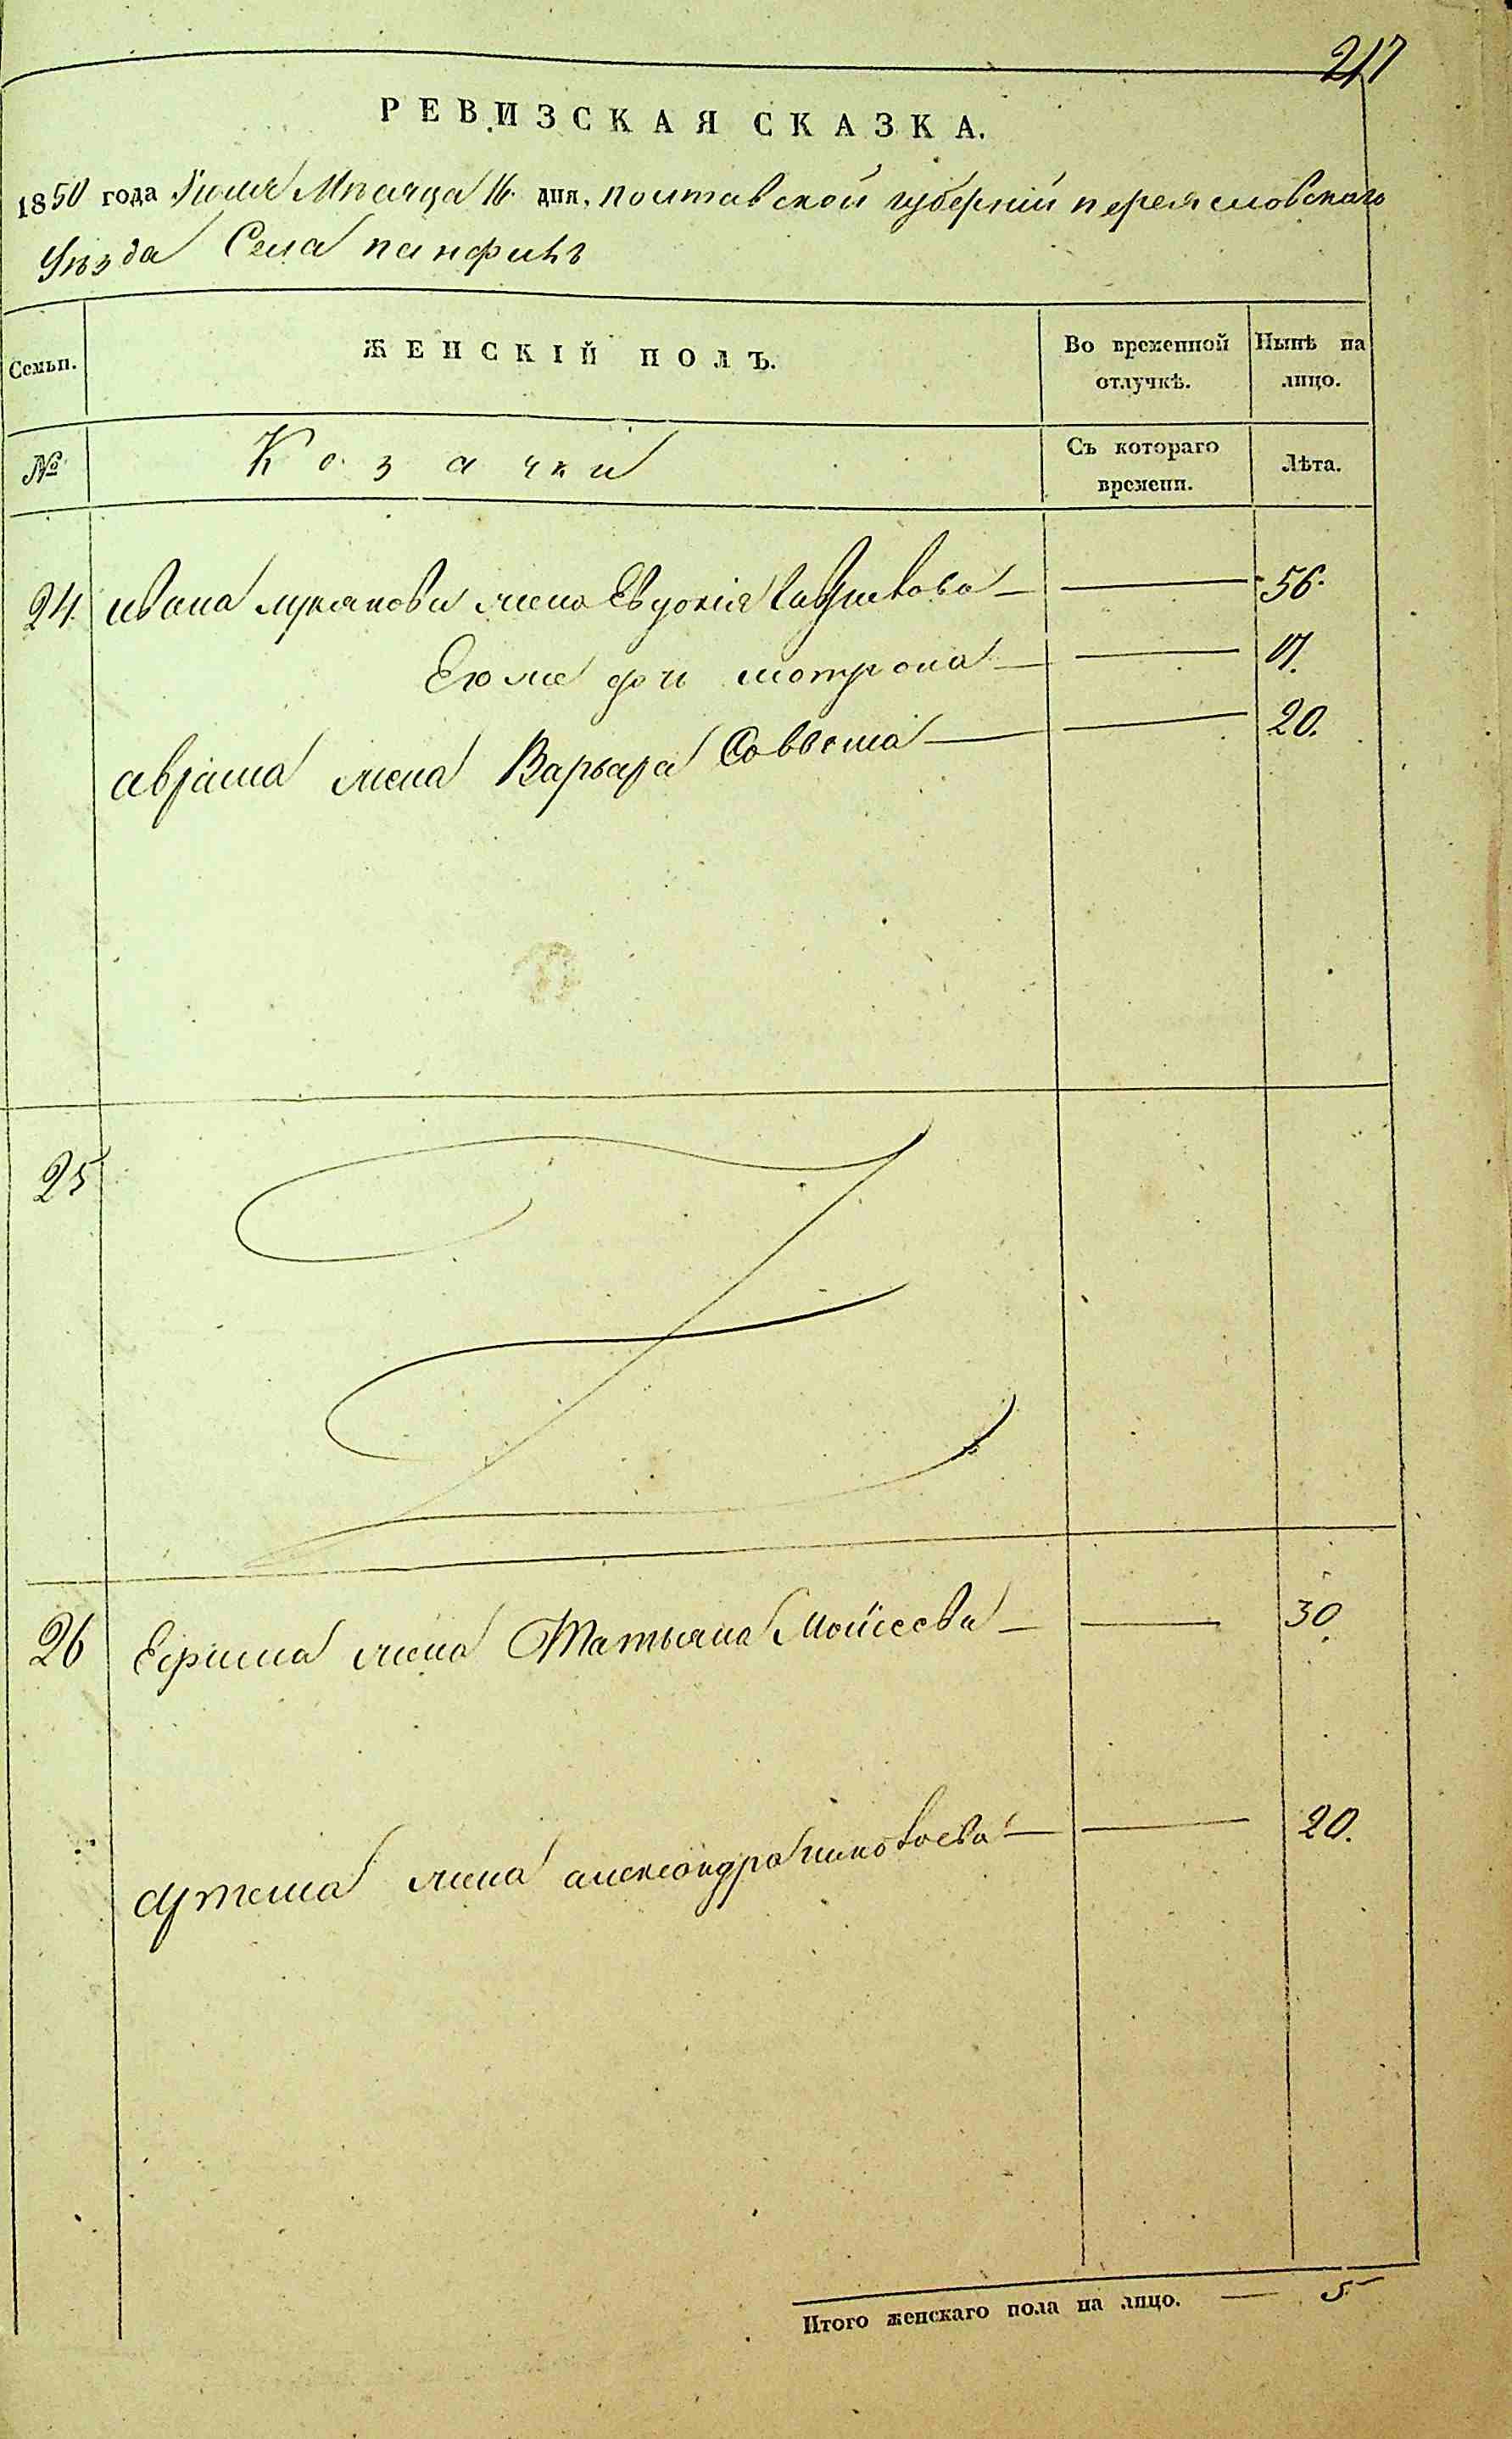 217
РЕВИЗСКАЯ СКАЗКА.
1850 года Іюля Мѣсяца 16 дня, полтавской губерніи переяславскаго
Уѣзда Села панфилъ
Семьи. ЖЕНСКІЙ ПОЛЪ. Во временной отлучкѣ. Нынѣ на лицо.
№ Козачки Съ котораго времени. Лѣта.
24 ивана лукянова жена Евдокія — 56.
Его же дочь мотрона — 17.
аврама жена Варвара Саввина — 20.
25
26 Ефима жена Татьяна Моисеева — 30
артема жена александра николаева — 20.
Итого женскаго пола на лицо. — 5